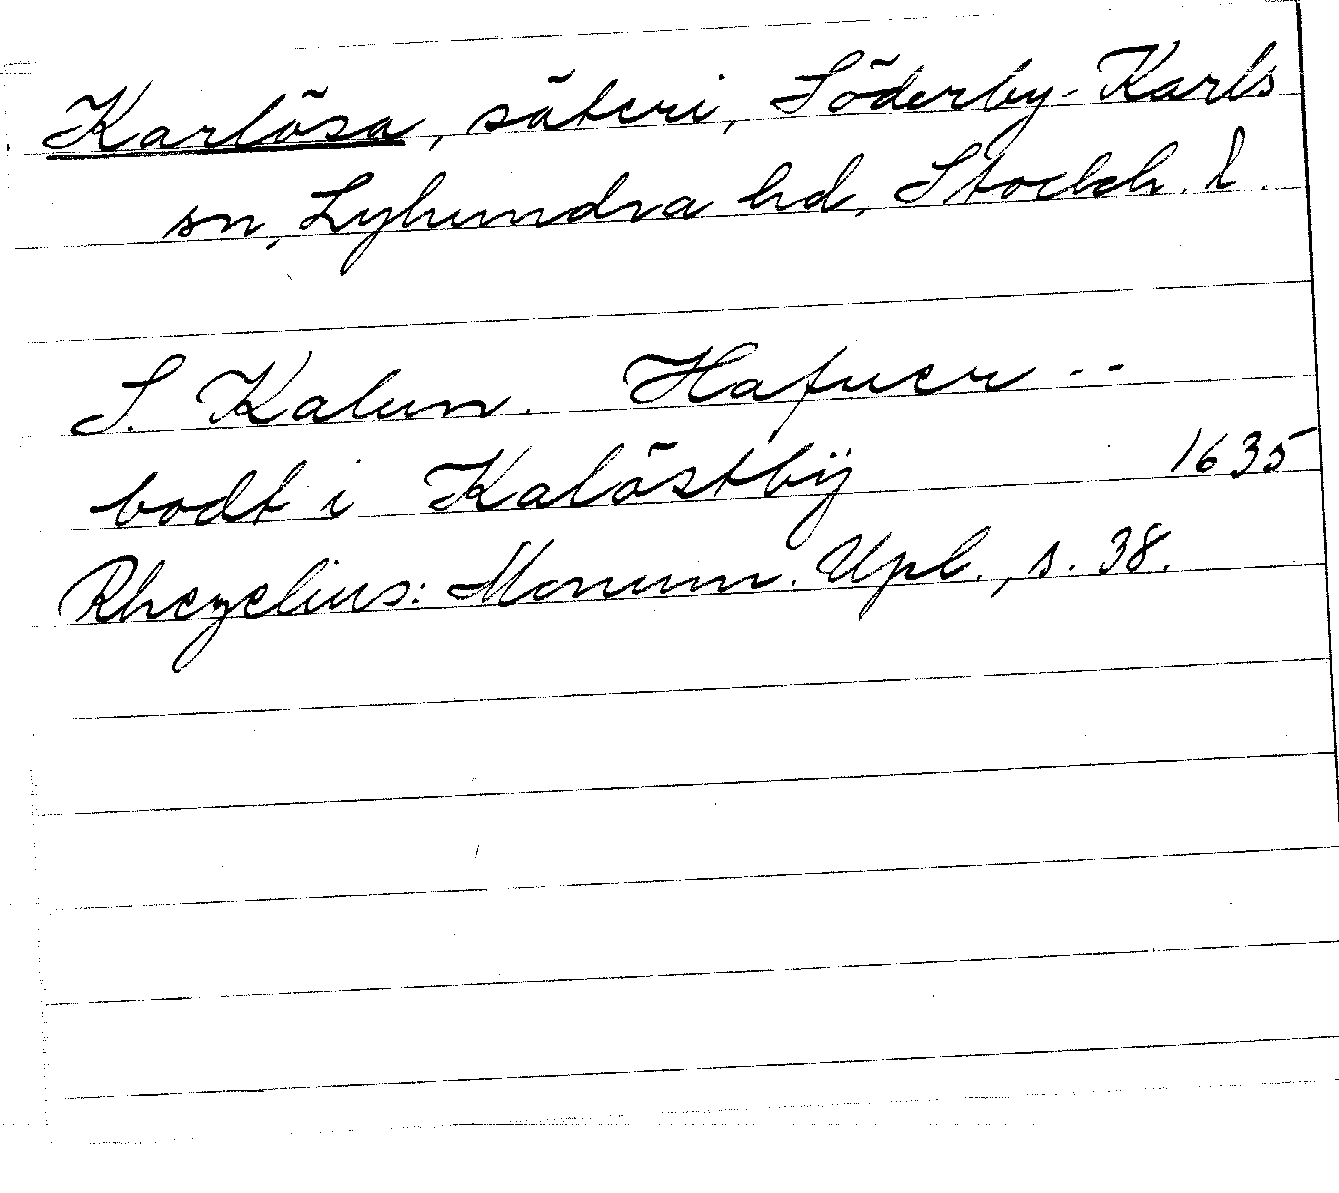 Karlösa, säteri, Söderby-Karls
sn, Lyhundra hd, Stockh. l.
S. Kalun. Hafuer --
bodt i Kalöstbÿ 1635
Rhezelius: Monum. Upl., s. 38.